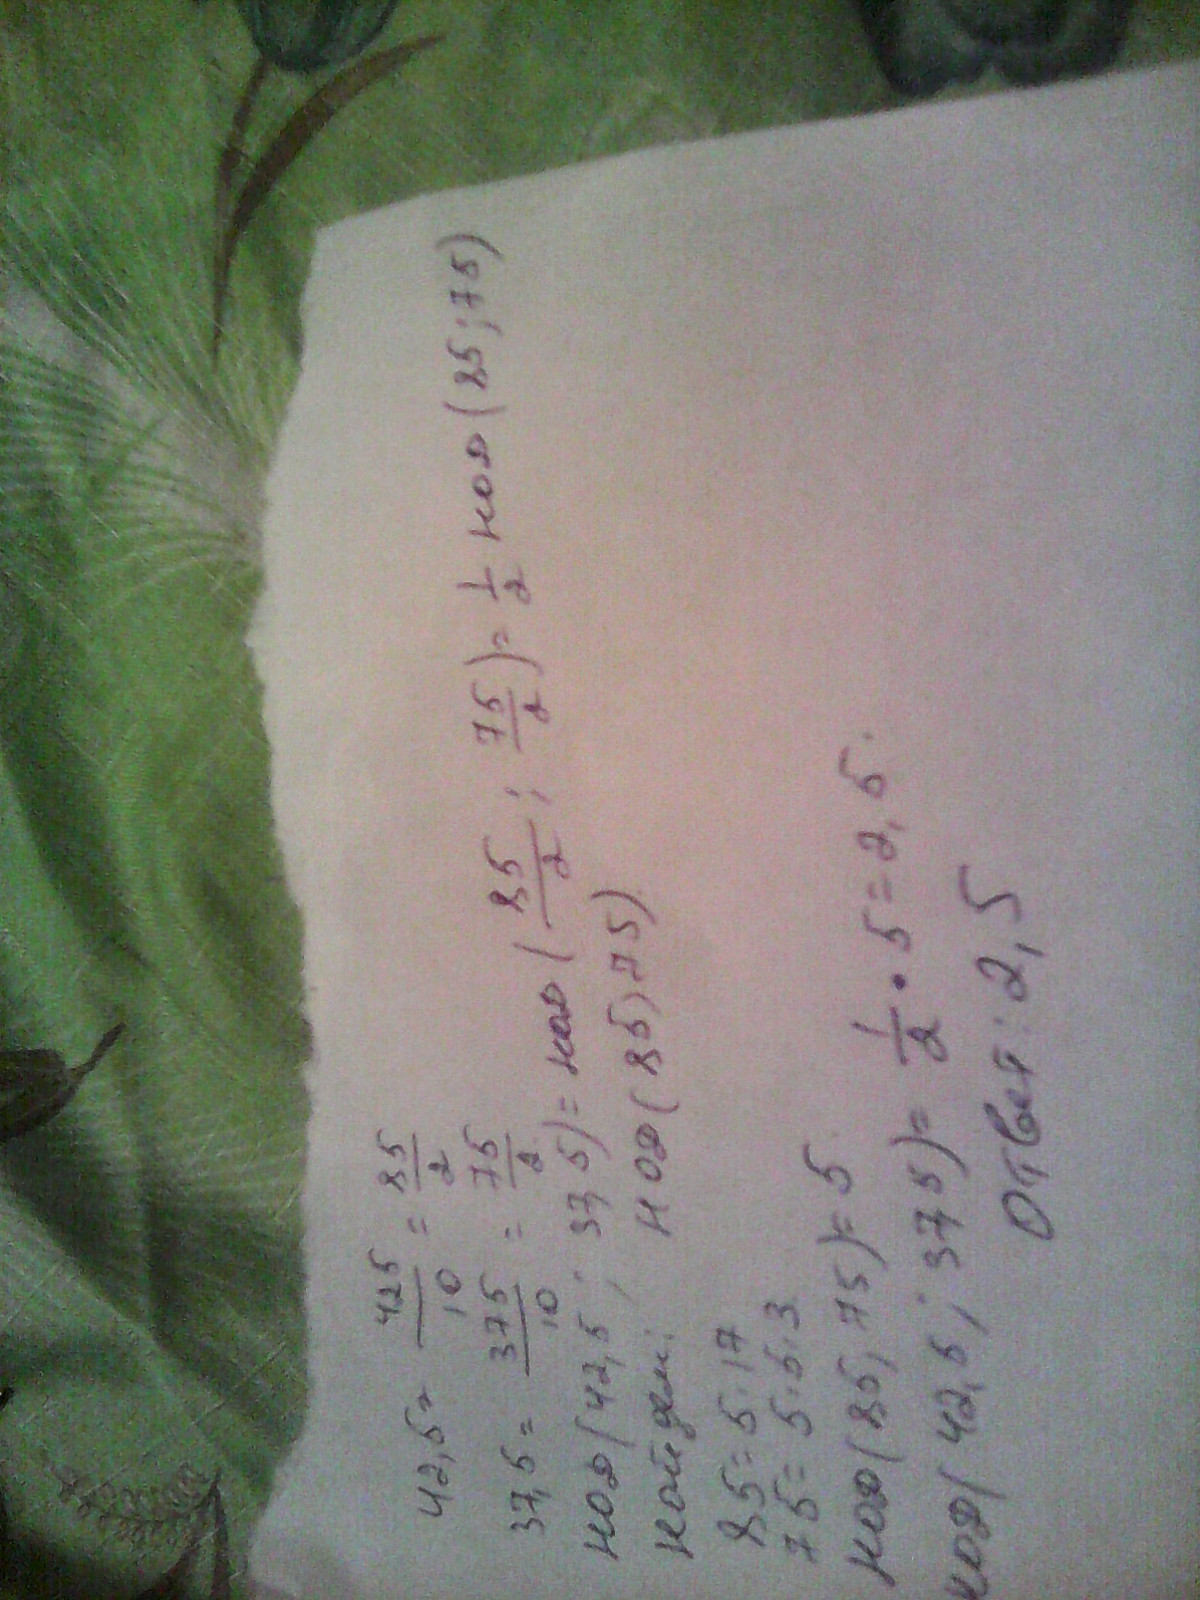 42,5 = 425/10 = 85/2
37,5 = 375/10 = 75/2
НОД(42,5; 37,5) = НОД(85/2; 75/2) = 1/2 НОД(85; 75)
Найдем: НОД(85; 75)
85 = 5·17
75 = 5·5·3
НОД(85; 75) = 5
НОД(42,5; 37,5) = 1/2 · 5 = 2,5.
Ответ: 2,5